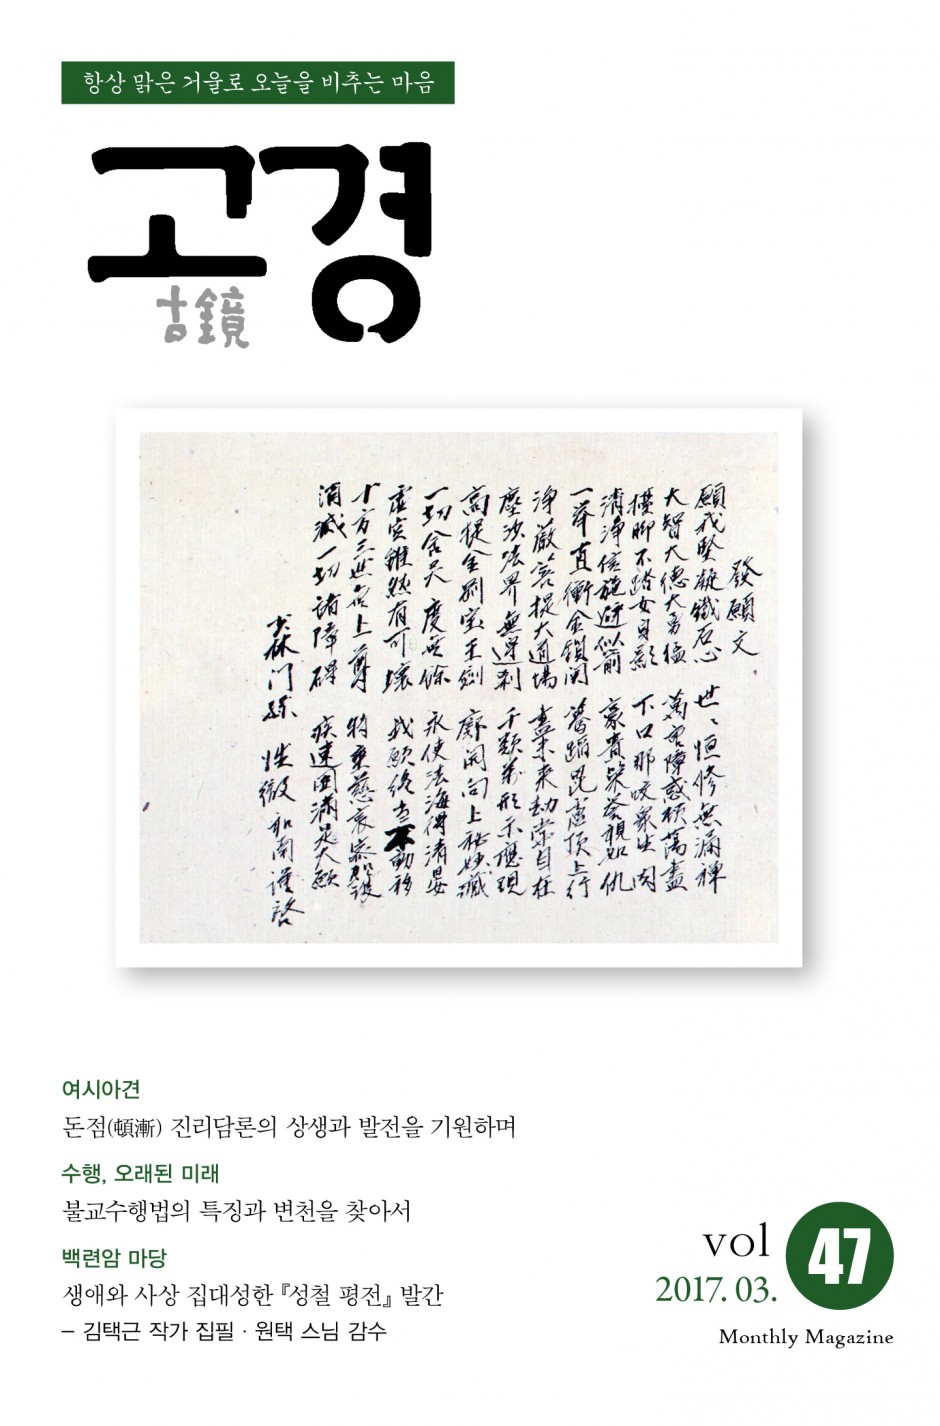 항상 맑은 거울로 오늘을 비추는 마음
고경
古鏡
發願文
願我堅凝鐵石心 世〻恒修無漏禪
大智大德大勇猛 萬重障惑頓蕩盡
橫脚不踏女身影 下口那咬衆生肉
清淨信施避似箭 豪貴榮 視如仇
一擧直衝金鎖関 驀踏毘盧頂上行
淨嚴菩提大道場 盡未來劫常自在
塵沙法界無邊刹 千類萬形示應現
高提金剛宝王劍 廓開向上秘妙藏
一切含灵度無餘 永使法海得清晏
虛空雖然有可壞 我願終 不動移
十方三世無上尊 特垂慈哀密加護
消滅一切諸障碍 疾速圓滿是大願
少林門孫 性徹和南謹啓
여시아견
돈점(頓漸) 진리담론의 상생과 발전을 기원하며
수행, 오래된 미래
불교수행법의 특징과 변천을 찾아서
백련암 마당
생애와 사상 집대성한 『성철 평전』 발간
– 김택근 작가 집필 · 원택 스님 감수
vol 47
2017. 03.
Monthly Magazine